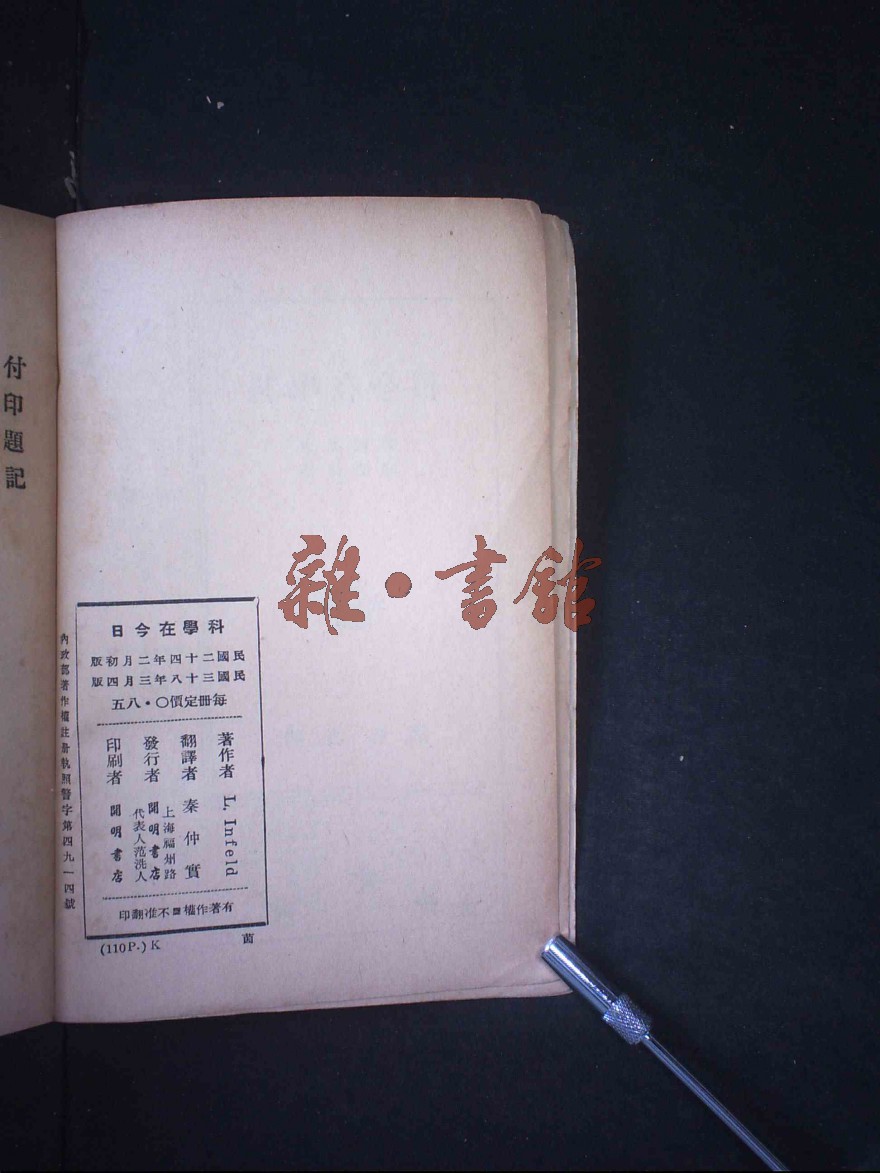 付印題記
雜•書館
科學在今日
民國二十四年二月初版
民國三十八年三月四版
每冊定價〇・八五
著作者 L. Infeld
翻譯者 秦仲實
發行者 上海福州路 開明書店 代表人范洗人
印刷者 開明書店
有著作權不准翻印
內政部著作權註冊執照警字第四九一四號
(110P.) K
茵